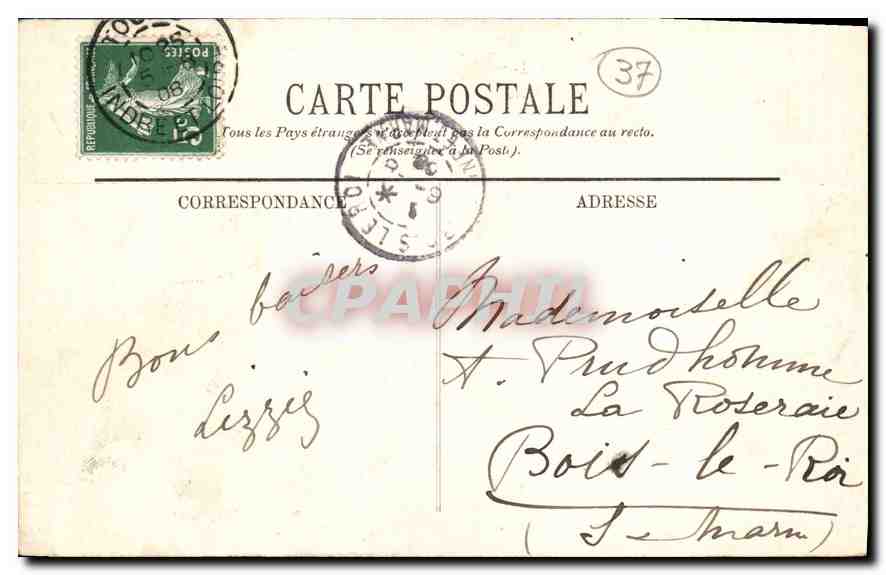 37
REPUBLIQUE FRANÇAISE
POSTES
5
10 25
5
08
INDRE ET LOIRE
CARTE POSTALE
Tous les Pays étrangers n'acceptent pas la Correspondance au recto.
(Se renseigner à la Poste).
BOIS LE ROI
CORRESPONDANCE
ADRESSE
Bons baisers
Lizzie
CPAPHIL
Mademoiselle
A. Prudhomme
La Roseraie
Bois-le-Roi
(S-e Marne)